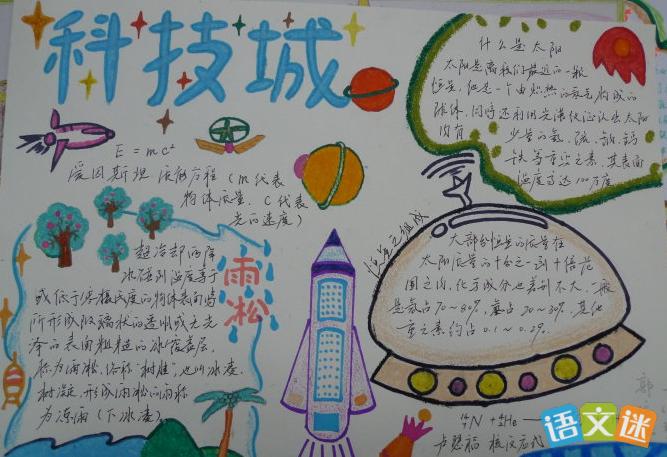 科技城
什么是太阳
太阳是离我们最近的一颗
恒星,他是一个由炽热的氢气构成的
球体,同时还利用光谱仪证认出太阳
内有
少量的氦、硫、钠、钙
铁等重些元素,其表面
温度高达100万度
E=mc²
爱因斯坦 质能方程(m代表
物体质量,C代表
光的速度)
恒星之组成
大部分恒星的质量在
太阳质量的十分之一到十倍范
围之内,化学成分也差别不大,一般
是氢占70~80%,氦占20~30%,其他
重元素约占0.1~0.2%.
雨淞
超冷却雨降
水碰到温度等于
或低于零摄氏度的物体表面时
所形成玻璃状的透明或无光
泽的表面粗糙的冰覆盖层,
称为雨淞,俗称"树挂",也叫冰凌,
树凝,形成雨淞的雨称
为冻雨(下冰凌)
¹⁴₇N + ⁴₂He
卢瑟福 核反应式
语文迷